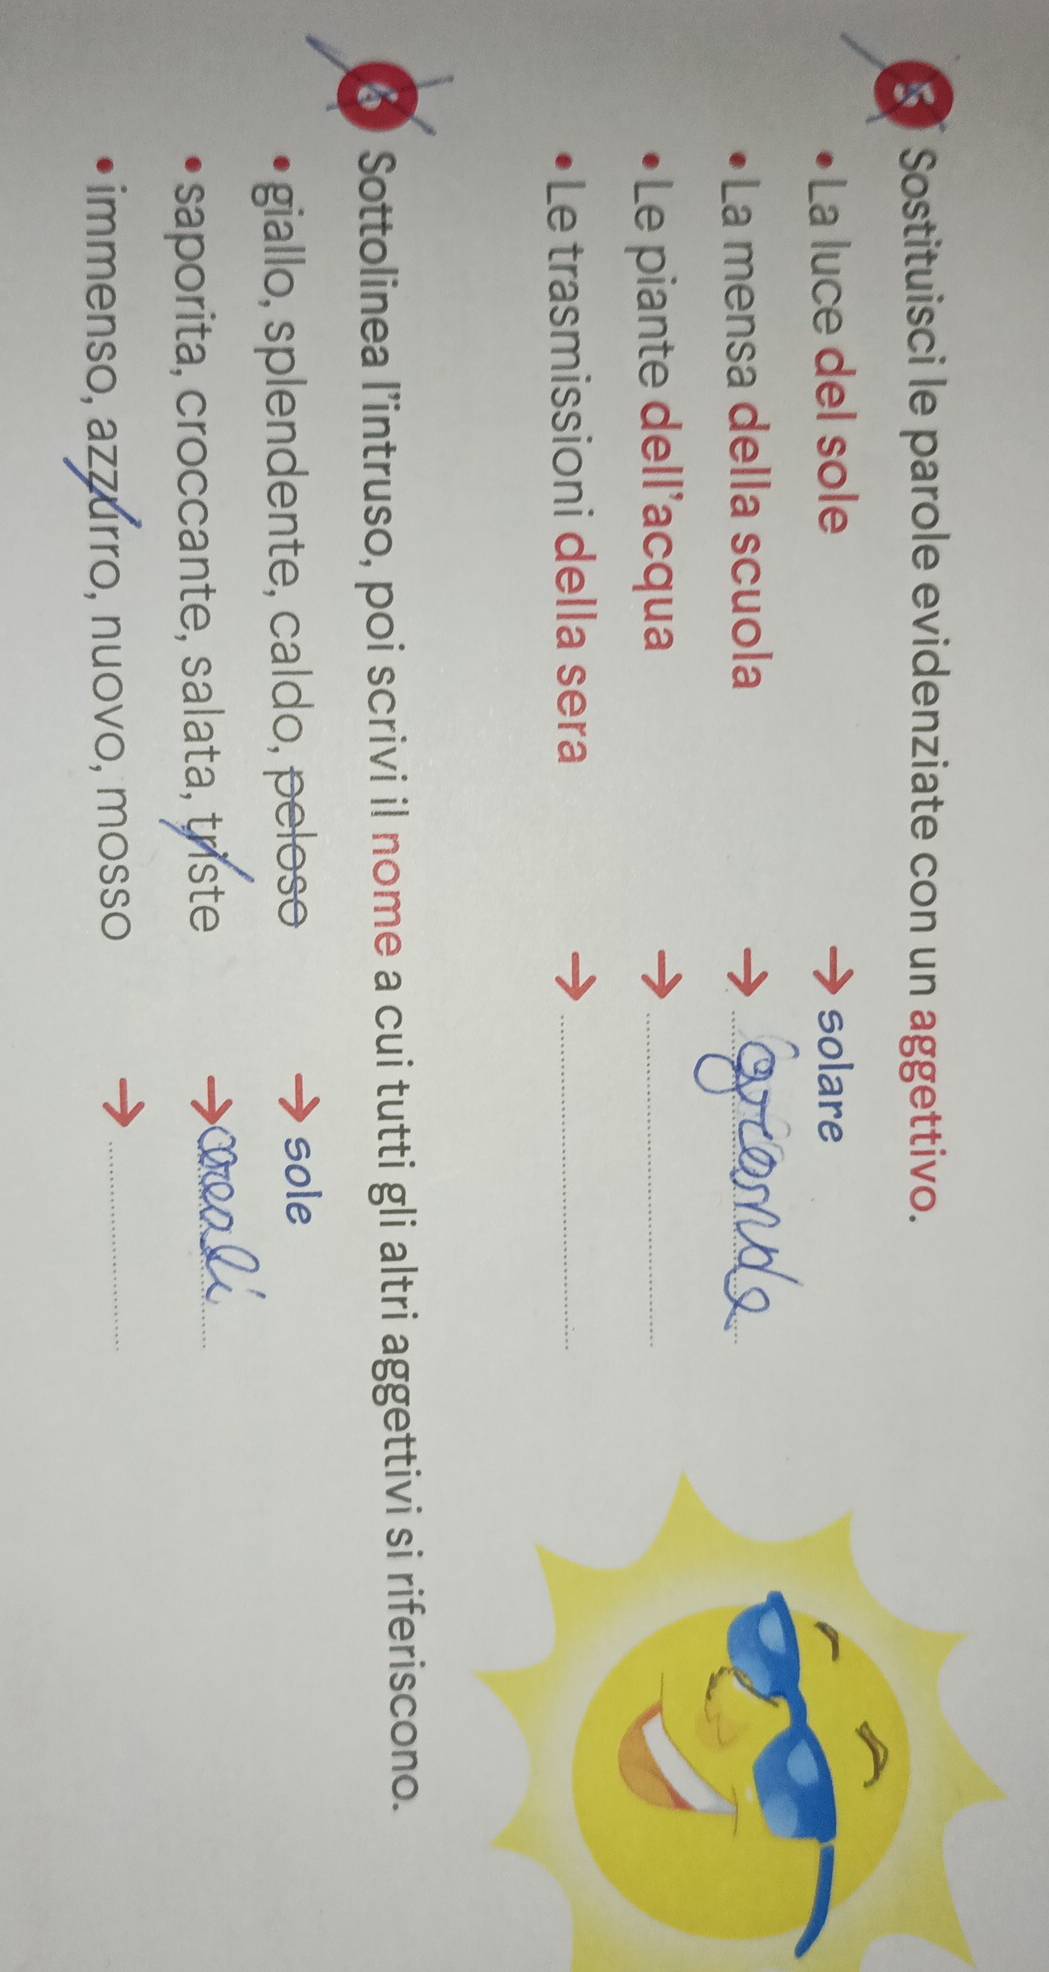 5 Sostituisci le parole evidenziate con un aggettivo.
• La luce del sole → solare
• La mensa della scuola → grande
• Le piante dell'acqua →
• Le trasmissioni della sera →
6 Sottolinea l'intruso, poi scrivi il nome a cui tutti gli altri aggettivi si riferiscono.
• giallo, splendente, caldo, peloso → sole
• saporita, croccante, salata, triste → cereali
• immenso, azzurro, nuovo, mosso →